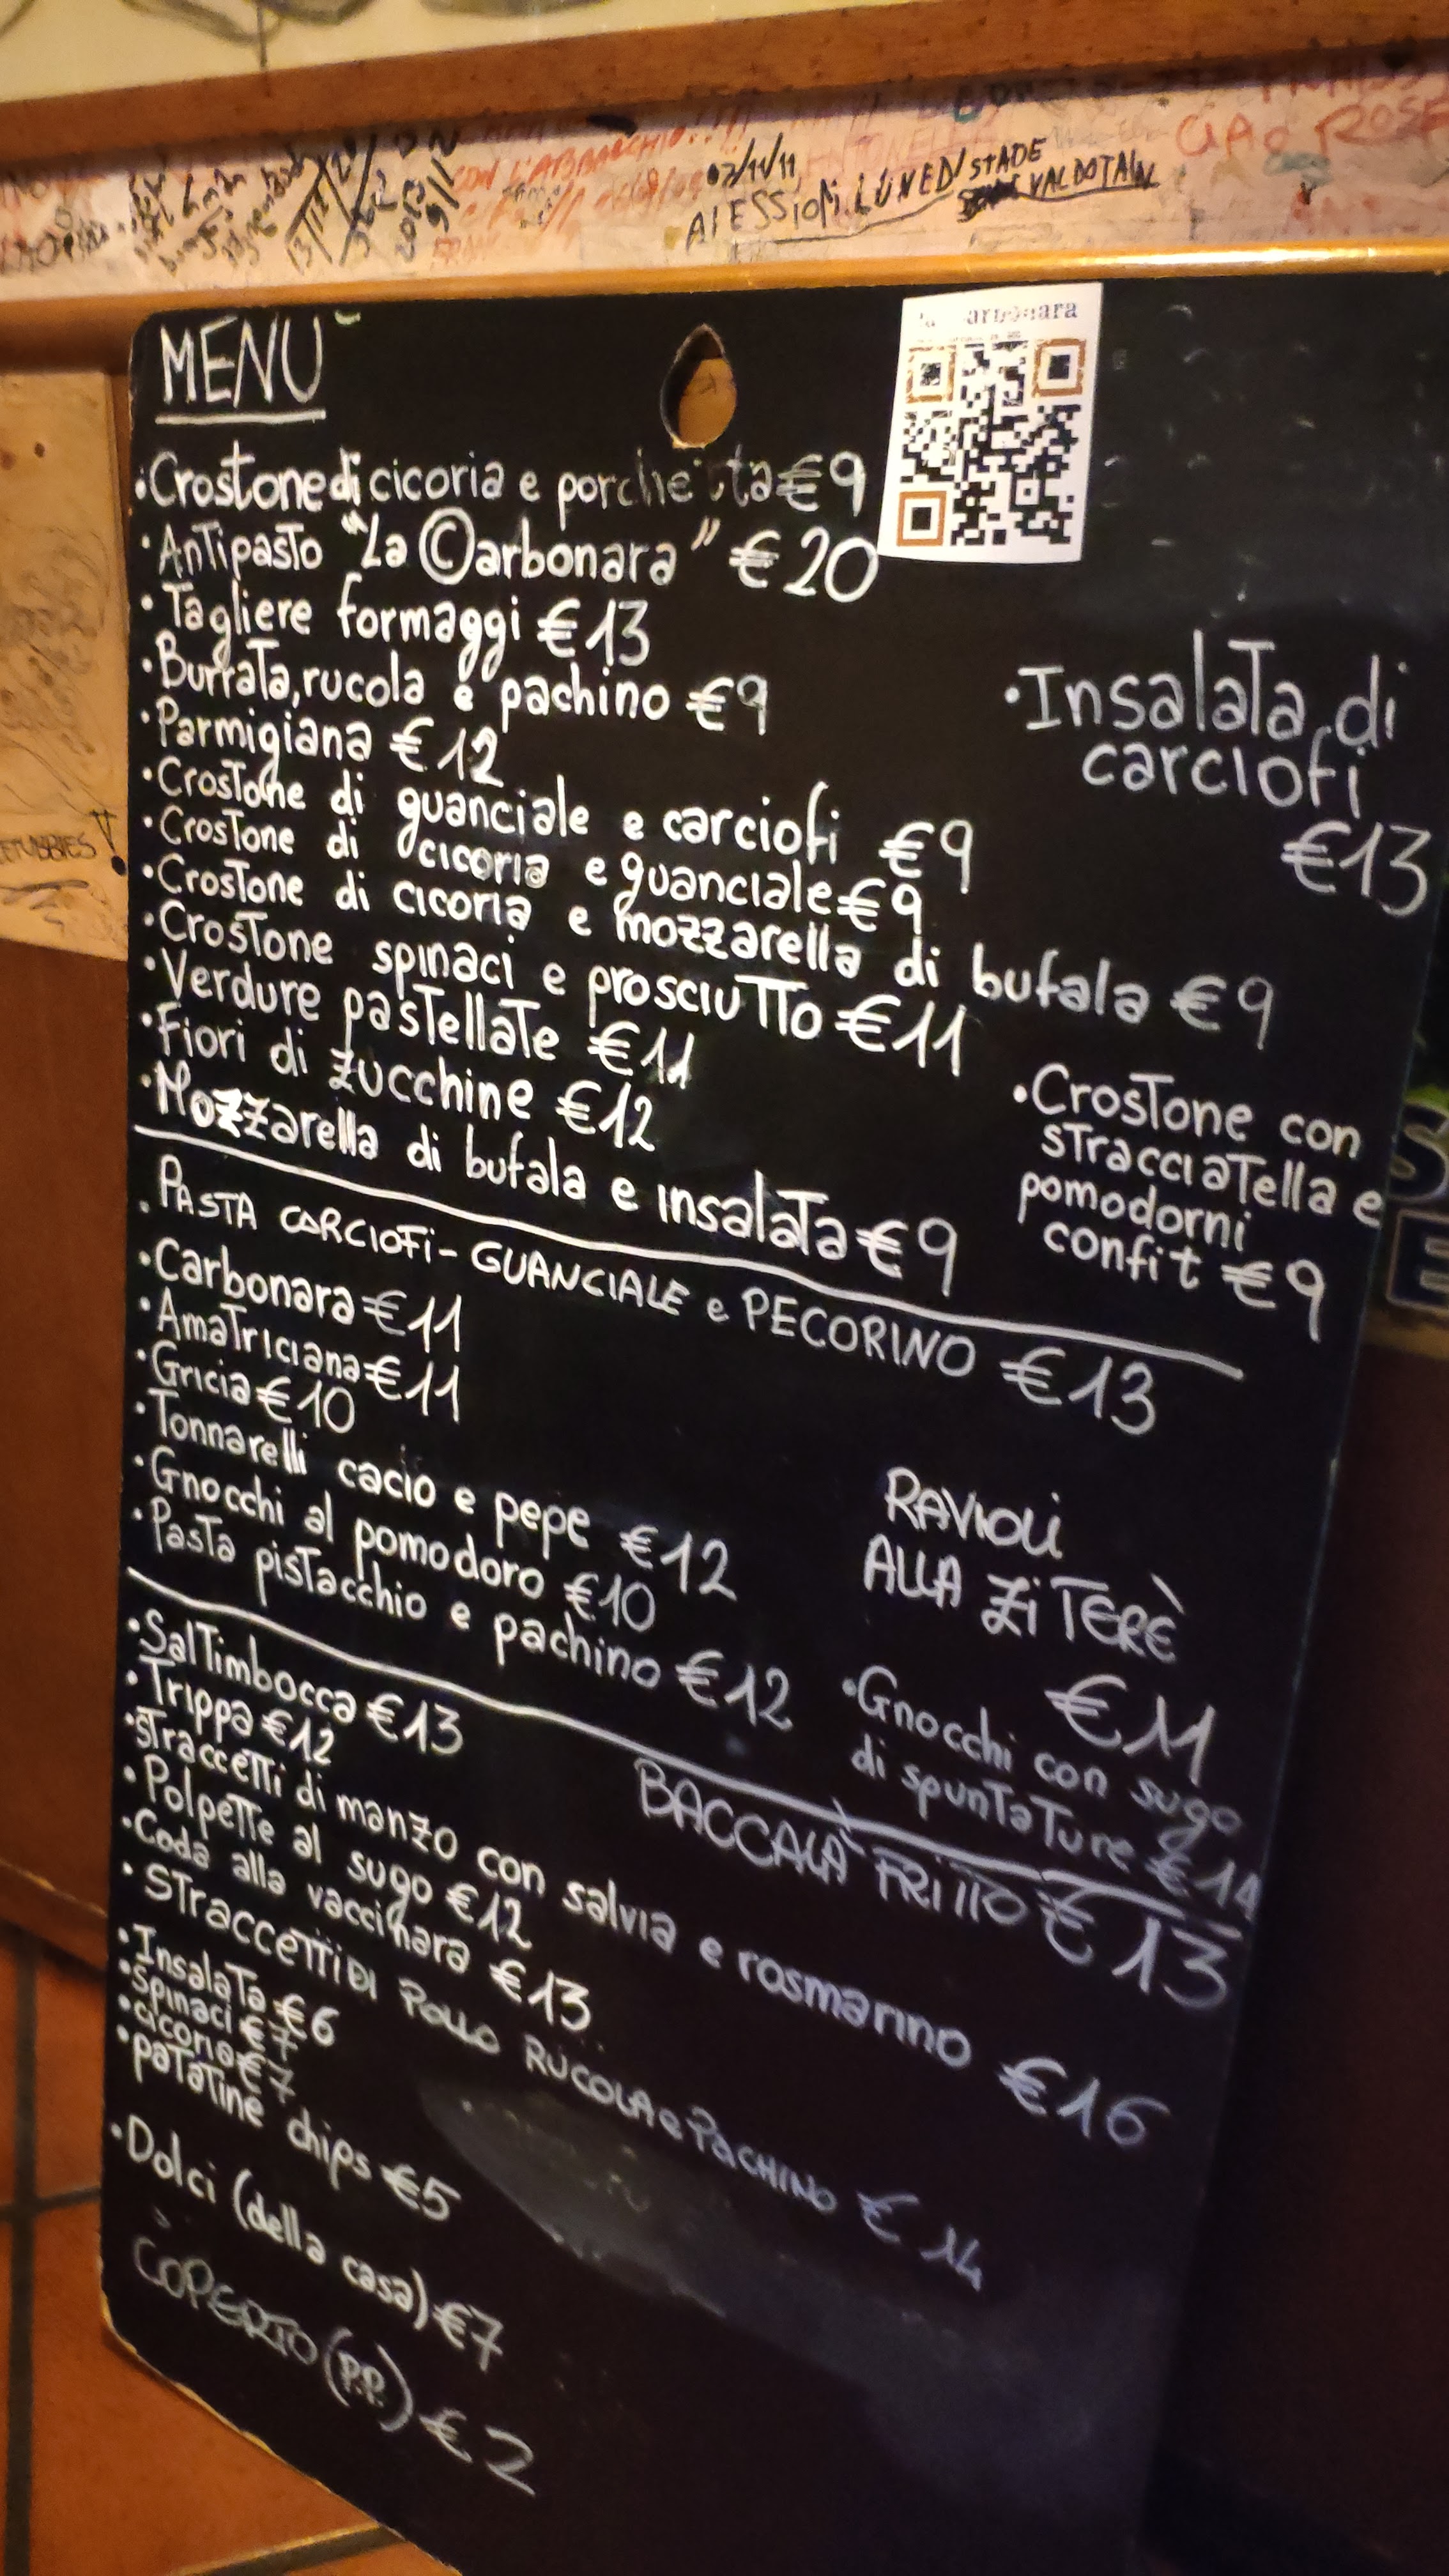 CON L'ABBACCHIO!!!
07/11/11
CIAO ROSE
MENU
arbonara
·Crostone di cicoria e porchetta €9
·Antipasto "La ©arbonara" €20
·Tagliere formaggi €13
·Burrata, rucola e pachino €9
·Parmigiana €12
·Crostone di guanciale e carciofi €9
·Crostone di cicoria e guanciale €9
·Crostone di cicoria e mozzarella di bufala €9
·Crostone spinaci e prosciutto €11
·Verdure pastellate €11
·Fiori di zucchine €12
·Mozzarella di bufala e insalata €9
·Insalata di
carciofi
€13
·Crostone con
stracciatella e
pomodorni
confit €9
·PASTA CARCIOFI-GUANCIALE e PECORINO €13
·Carbonara €11
·Amatriciana €11
·Gricia €10
·Tonnarelli cacio e pepe €12
·Gnocchi al pomodoro €10
·Pasta pistacchio e pachino €12
RAVIOLI
ALLA ZI TERÈ
€11
·Gnocchi con sugo
di spuntature €14
·Saltimbocca €13
·Trippa €12
·Straccetti di manzo con salvia e rosmarino €16
·Polpette al sugo €12
·Coda alla vaccinara €13
·STRACCETTI DI POLLO RUCOLA e PACHINO €14
BACCALÀ FRITTO €13
·Insalata €6
·Spinaci €7
·cicoria €7
·patatine chips €5
·Dolci (della casa) €7
COPERTO (P.P.) €2